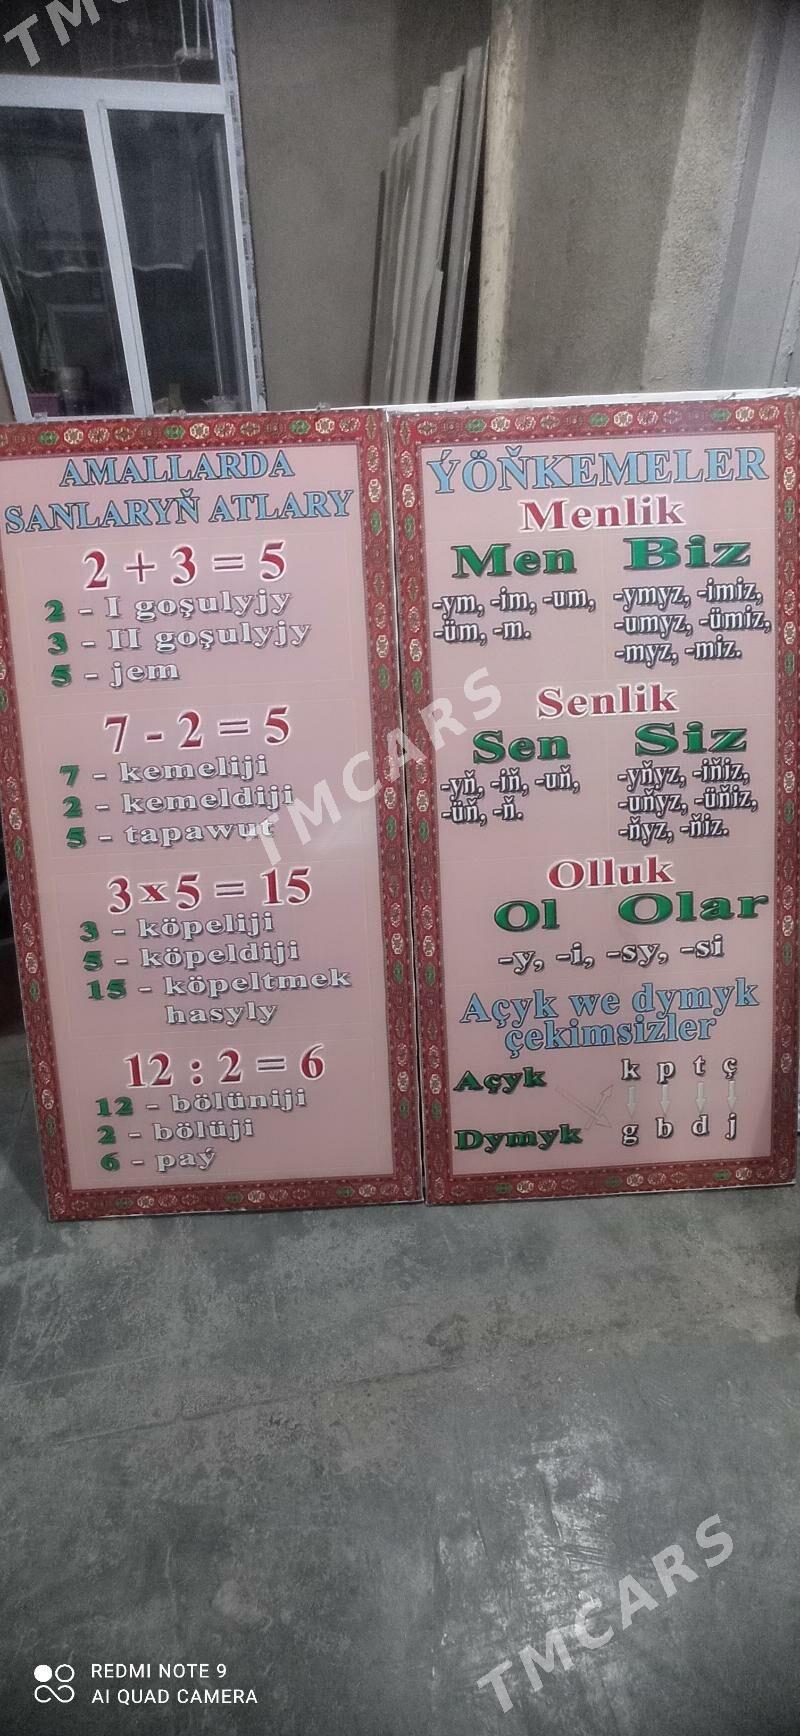 TMCARS
AMALLARDA
SANLARYŇ ATLARY
2 + 3 = 5
2 - I goşulyjy
3 - II goşulyjy
5 - jem
7 - 2 = 5
7 - kemeliji
2 - kemeldiji
5 - tapawut
3 x 5 = 15
3 - köpeliji
5 - köpeldiji
15 - köpeltmek
hasyly
12 : 2 = 6
12 - bölüniji
2 - bölüji
6 - paý
ÝÖŇKEMELER
Menlik
Men Biz
-ym, -im, -um, -ymyz, -imiz,
-üm, -m. -umyz, -ümiz,
-myz, -miz.
Senlik
Sen Siz
-yň, -iň, -uň, -yňyz, -iňiz,
-üň, -ň. -uňyz, -üňiz,
-ňyz, -ňiz.
Olluk
Ol Olar
-y, -i, -sy, -si
Açyk we dymyk
çekimsizler
Açyk k p t ç
Dymyk g b d j
TMCARS
TMCARS
REDMI NOTE 9
AI QUAD CAMERA